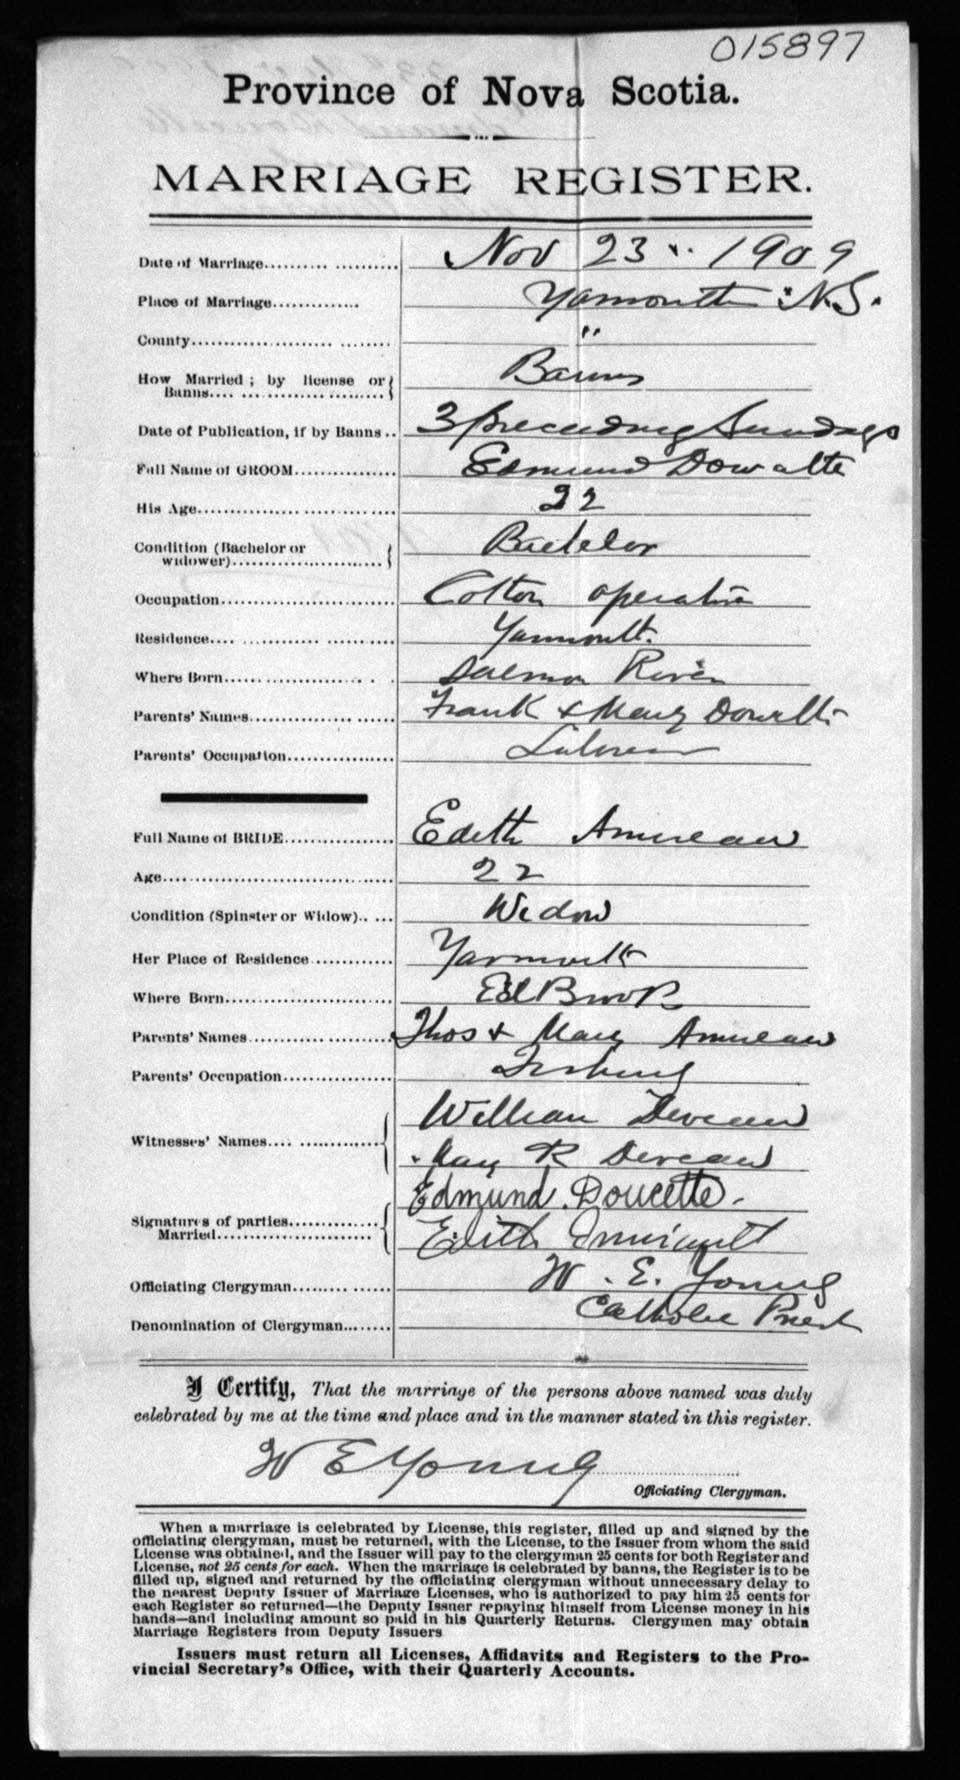 015897
Province of Nova Scotia.
MARRIAGE REGISTER.
Date of Marriage.......... .......... Nov 23 .. 1909
Place of Marriage............. Yarmouth N.S.
County...................... ........ "
How Married ; by license or Banns.... ... .................. Banns
Date of Publication, if by Banns .. 3 preceding Sundays
Full Name of GROOM.............. Edmund Dowcette
His Age........................ ....... 22
Condition (Bachelor or widower)...................... ...... Bachelor
Occupation......................... Cotton operative
Residence.... ........... ...... ..... Yarmouth.
Where Born................... . . . Salmon River
Parents' Names............... ...... Frank & Mary Dowcette
Parents' Occupation............... Laborer
Full Name of BRIDE................ Edith Amireau
Age................................. 22
Condition (Spinster or Widow).. .... Widow
Her Place of Residence............ Yarmouth
Where Born........................ Eel Brook
Parents' Names............... ..... Thos & Mary Amireau
Parents' Occupation................ Fishing
Witnesses' Names.... ............. William Deveau
May R Deveau
Signatures of parties............. Married...................... Edmund Doucette.
Edith
Officiating Clergyman......... ..... W. E. Young
Denomination of Clergyman........ Catholic Priest
I Certify, That the marriage of the persons above named was duly
celebrated by me at the time and place and in the manner stated in this register.
W E Young
Officiating Clergyman.
When a marriage is celebrated by License, this register, filled up and signed by the
officiating clergyman, must be returned, with the License, to the Issuer from whom the said
License was obtained, and the Issuer will pay to the clergyman 25 cents for both Register and
License, not 25 cents for each. When the marriage is celebrated by banns, the Register is to be
filled up, signed and returned by the officiating clergyman without unnecessary delay to
the nearest Deputy Issuer of Marriage Licenses, who is authorized to pay him 25 cents for
each Register so returned—the Deputy Issuer repaying himself from License money in his
hands—and including amount so paid in his Quarterly Returns. Clergymen may obtain
Marriage Registers from Deputy Issuers
Issuers must return all Licenses, Affidavits and Registers to the Pro-
vincial Secretary's Office, with their Quarterly Accounts.